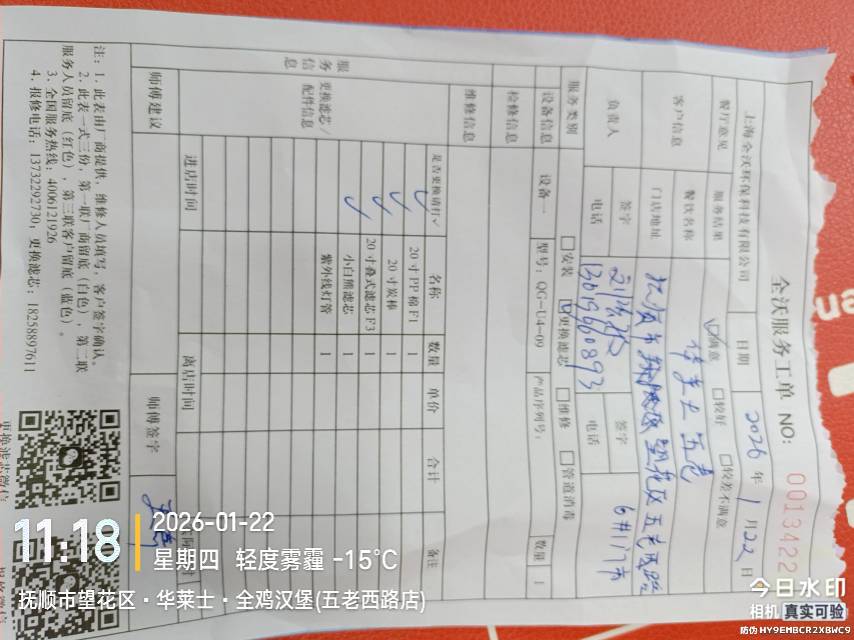 全沃服务工单 NO: 0013422
上海全沃环保科技有限公司 日期 2026年1月22日
餐厅意见 服务结果 ☑满意 □较好 □较差不满意
客户信息 餐饮名称 华莱士 五老
门店地址 抚顺市 望花区 五老西路
6#1门市
负责人 签字 签字
电话 13019660893 电话
服务类别 □安装 ☑更换滤芯 □维修 □管道消毒
设备信息 设备一 型号: QG-U4-09 产品序列号: 数量 1
检修信息
维修信息
服务信息
更换滤芯/配件信息
是否更换请打✓ 名称 数量 单价 合计 备注
✓ 20寸PP棉F1 1
✓ 20寸炭棒 1
✓ 20寸叠式滤芯F3 1
✓ 小白熊滤芯 1
紫外线灯管 1
进店时间 离店时间
师傅建议 师傅签字
注: 1. 此表由厂商提供, 维修人员填写, 客户签字确认。
2. 此表一式三份, 第一联厂商留底(白色), 第二联
服务人员留底(红色), 第三联客户留底(蓝色)。
3. 全国服务热线: 4006121926
4. 报修电话: 13732292730, 更换滤芯: 18258897611
更换滤芯微信
报修微信
11:18
2026-01-22
星期四 轻度雾霾 -15℃
抚顺市望花区·华莱士·全鸡汉堡(五老西路店)
今日水印
相机 真实可验
防伪 HY9EMBCR2XBWC9